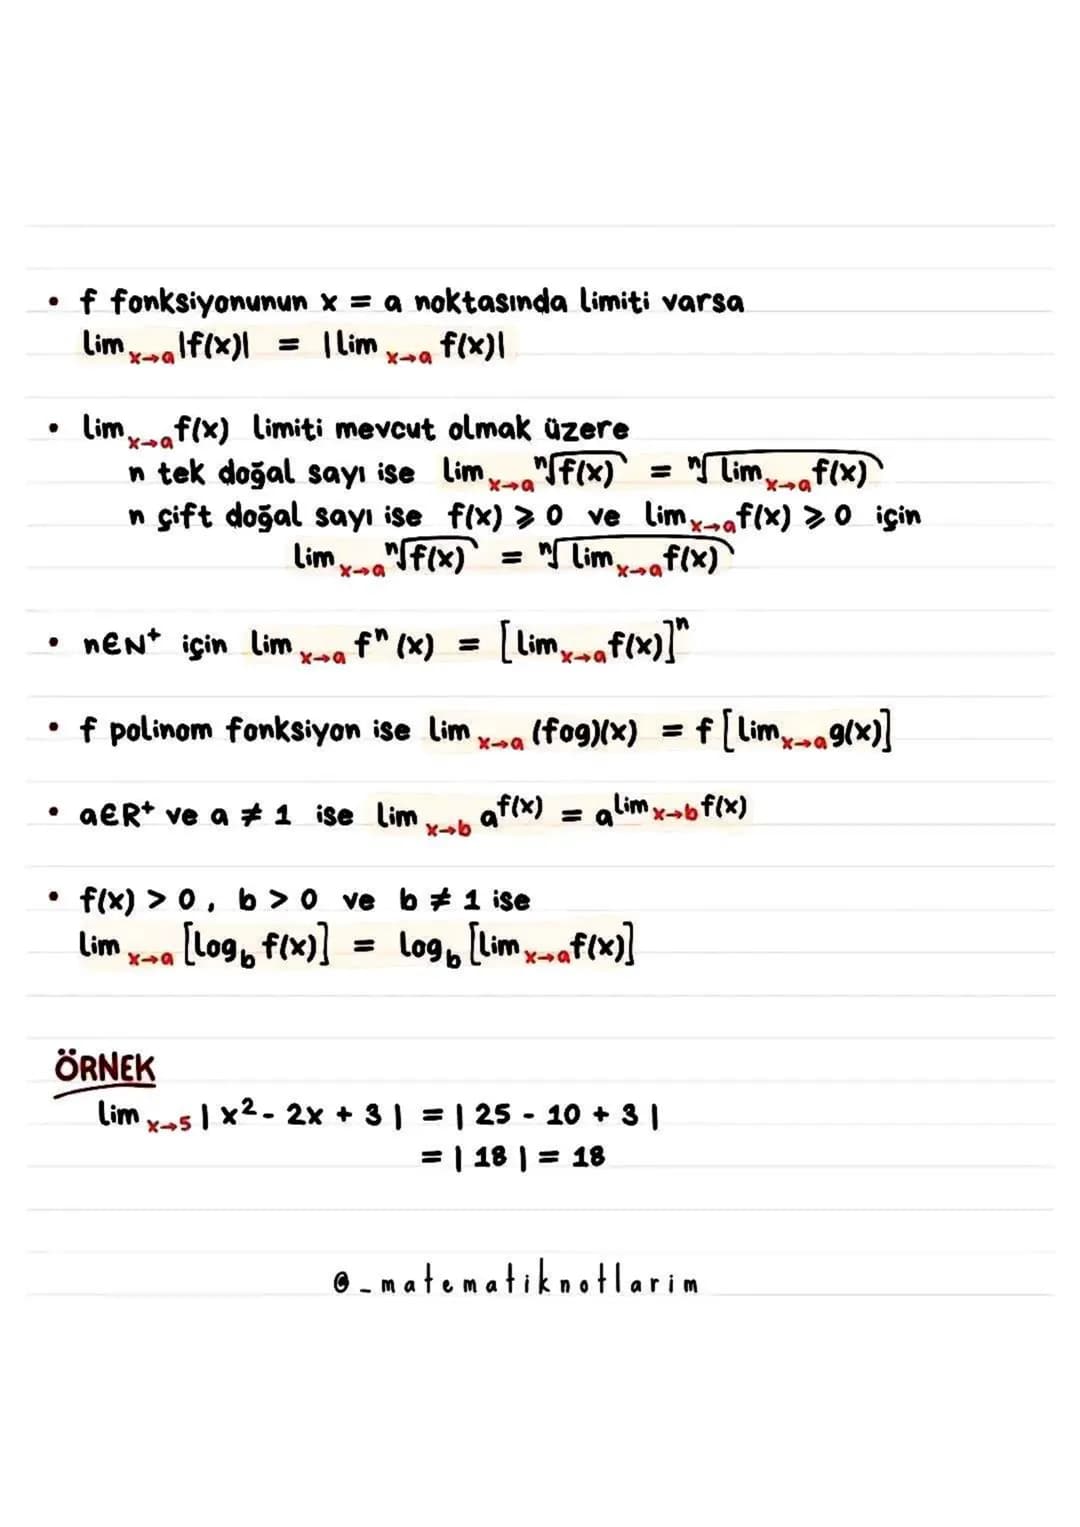 • f fonksiyonunun x = a noktasında limiti varsa
lim x→a |f(x)| = |lim x→a f(x)|
• lim x→a f(x) limiti mevcut olmak üzere
n tek doğal sayı ise lim x→a ⁿ√f(x) = ⁿ√lim x→a f(x)
n çift doğal sayı ise f(x) ⩾ 0 ve lim x→a f(x) ⩾ 0 için
lim x→a ⁿ√f(x) = ⁿ√lim x→a f(x)
• n∈N⁺ için lim x→a fⁿ(x) = [lim x→a f(x)]ⁿ
• f polinom fonksiyon ise lim x→a (fog)(x) = f [lim x→a g(x)]
• a∈R⁺ ve a ≠ 1 ise lim x→b a^f(x) = a^lim x→b f(x)
• f(x) > 0, b > 0 ve b ≠ 1 ise
lim x→a [log_b f(x)] = log_b [lim x→a f(x)]
ÖRNEK
lim x→5 | x² - 2x + 3 | = | 25 - 10 + 3 |
= | 18 | = 18
@_matematiknotlarim